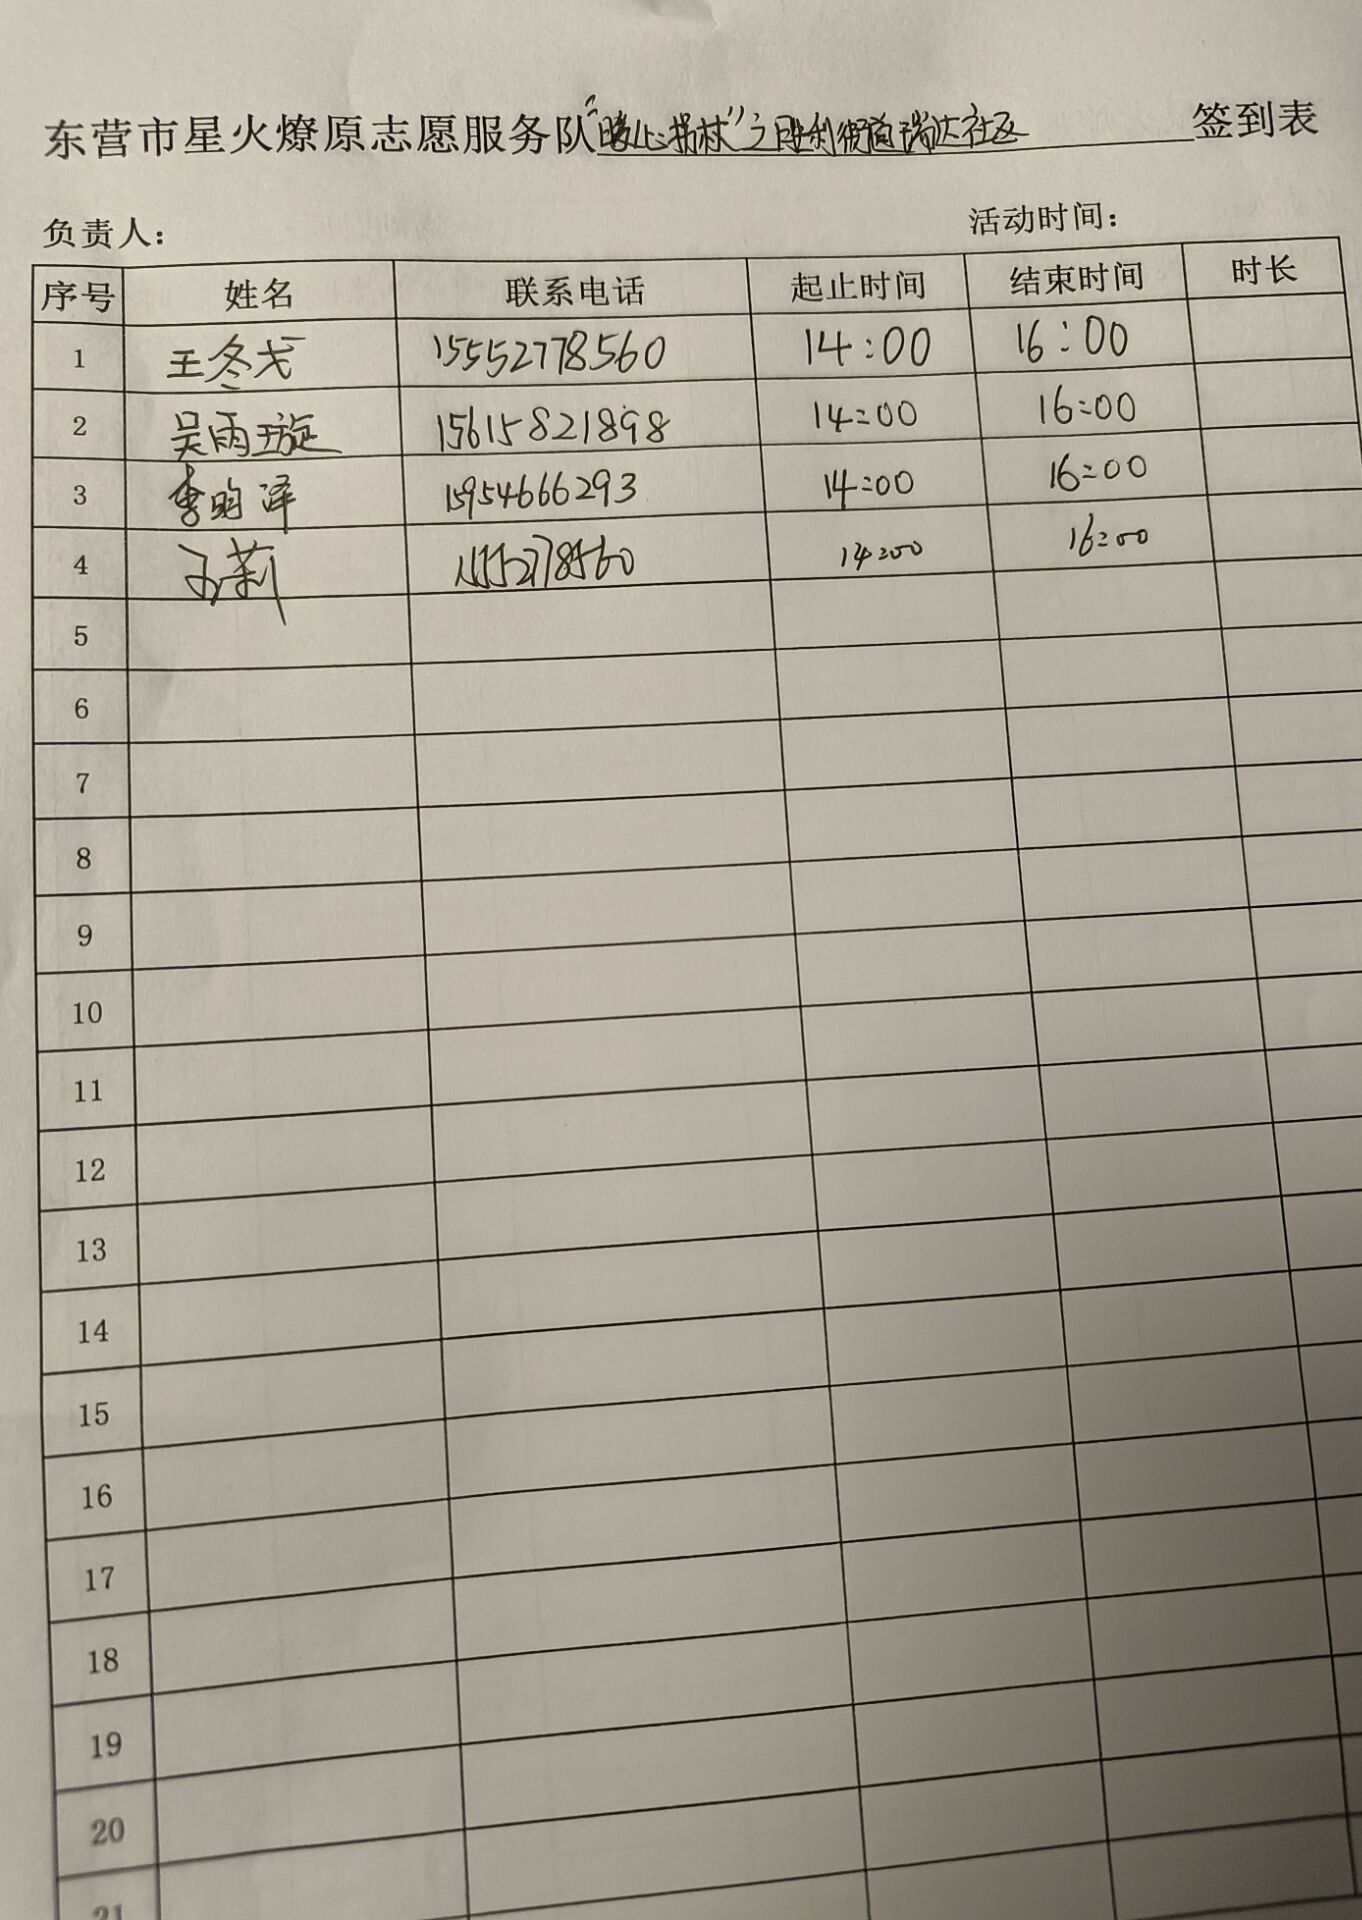 东营市星火燎原志愿服务队“暖心拐杖”之胜利街道瑞达社区签到表
负责人： 活动时间：
序号 姓名 联系电话 起止时间 结束时间 时长
1 王冬戈 15552778560 14:00 16:00
2 吴雨璇 15615821898 14:00 16:00
3 李昀泽 15954666293 14:00 16:00
4 孙莉 15552778560 14:00 16:00
5
6
7
8
9
10
11
12
13
14
15
16
17
18
19
20
21